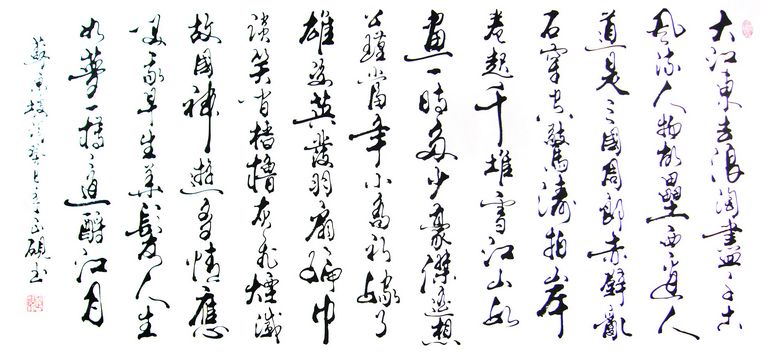 大江東去浪淘盡千古
風流人物故壘西邊人
道是三國周郎赤壁亂
石穿空驚濤拍岸
卷起千堆雪江山如
畫一時多少豪傑遙想
公瑾當年小喬初嫁了
雄姿英發羽扇綸巾
談笑間檣櫓灰飛煙滅
故國神遊多情應
笑我早生華髮人生
如夢一樽還酹江月
蘇東坡詞